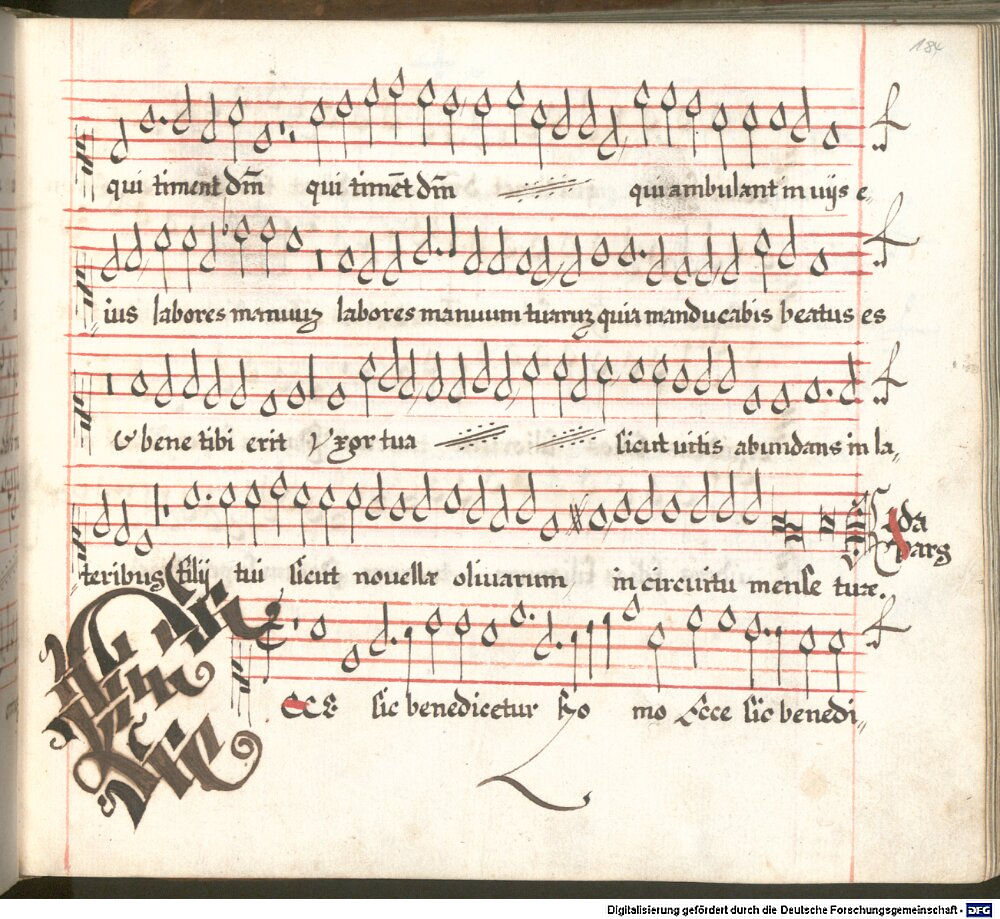 184
qui timent dm̄ qui timēt dm̄ qui ambulant in uijs e„
ius labores manuuꝫ labores manuum tuaruꝫ quia manducabis beatus es
& bene tibi erit Vxor tua sicut uitis abundans in la„
2da
pars
teribus Filij tui sicut nouellæ oliuarum in circuitu mense tuæ.
ECCE sic benedicetur ho mo Ecce sic benedi„
Digitalisierung gefördert durch die Deutsche Forschungsgemeinschaft - DFG